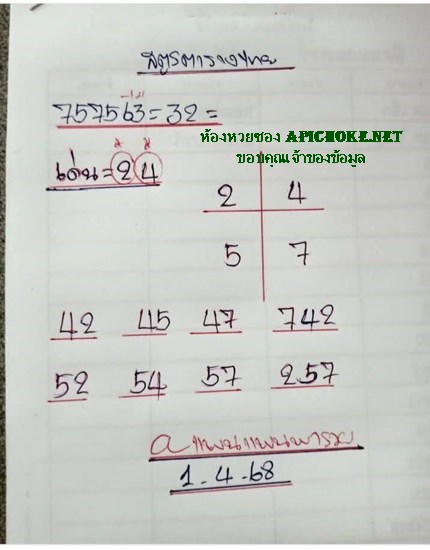 สูตรตารางไทย
757563=32=
ห้องหวยซอง APICHOKE.NET
ขอบคุณเจ้าของข้อมูล
เด่น=24
2 4
5 7
42 45 47 742
52 54 57 257
แพนแพนพารวย
1-4-68